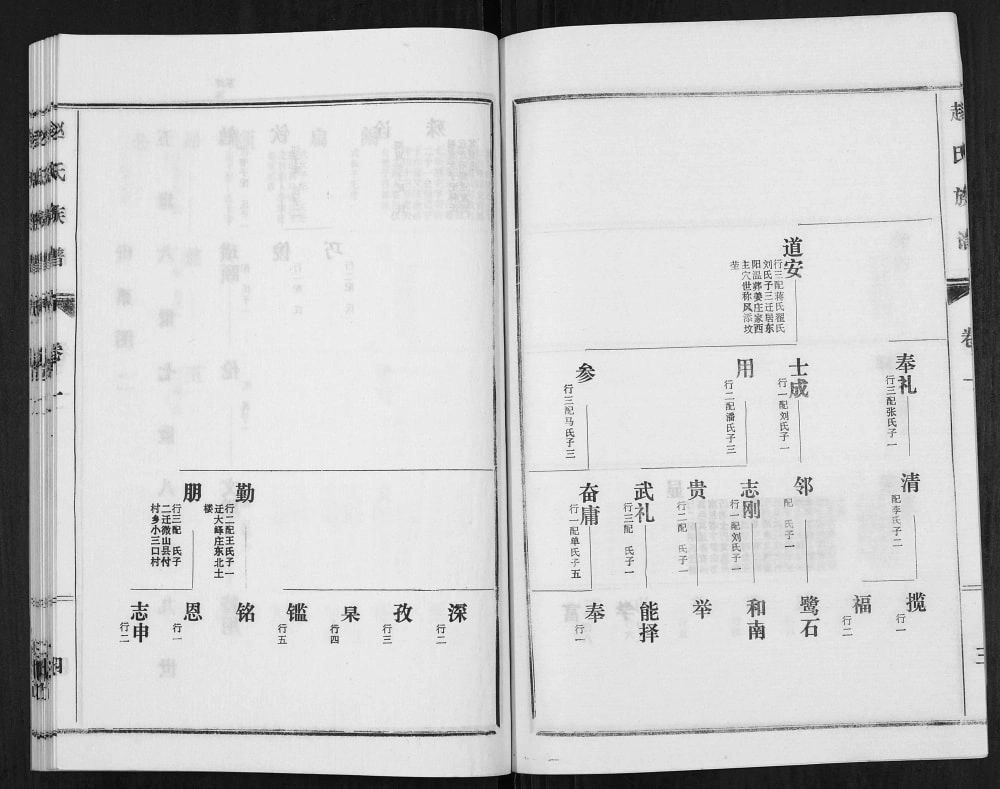 赵氏族谱
卷一
三
道安
行三配蒋氏翟氏
刘氏子三迁居东
阳温葬姜庄家西
主穴世称风添坟
茔
奉礼
行三配张氏子一
士成
行一配刘氏子一
用
行二配潘氏子三
参
行三配马氏子三
清
配李氏子二
邻
配 氏子一
志刚
行一配刘氏子一
贵
行二配 氏子一
武礼
行三配 氏子一
奋庸
行一配单氏子五
揽
行一
福
行二
鹭石
和南
举
能择
奉
行一
勤
行二配王氏子一
迁大峄庄东北土
楼
朋
行三配 氏子
二迁微山县付
村乡小三口村
深
行二
孜
行三
杲
行四
鑑
行五
铭
恩
行一
志申
行二
赵氏族谱
卷一
四